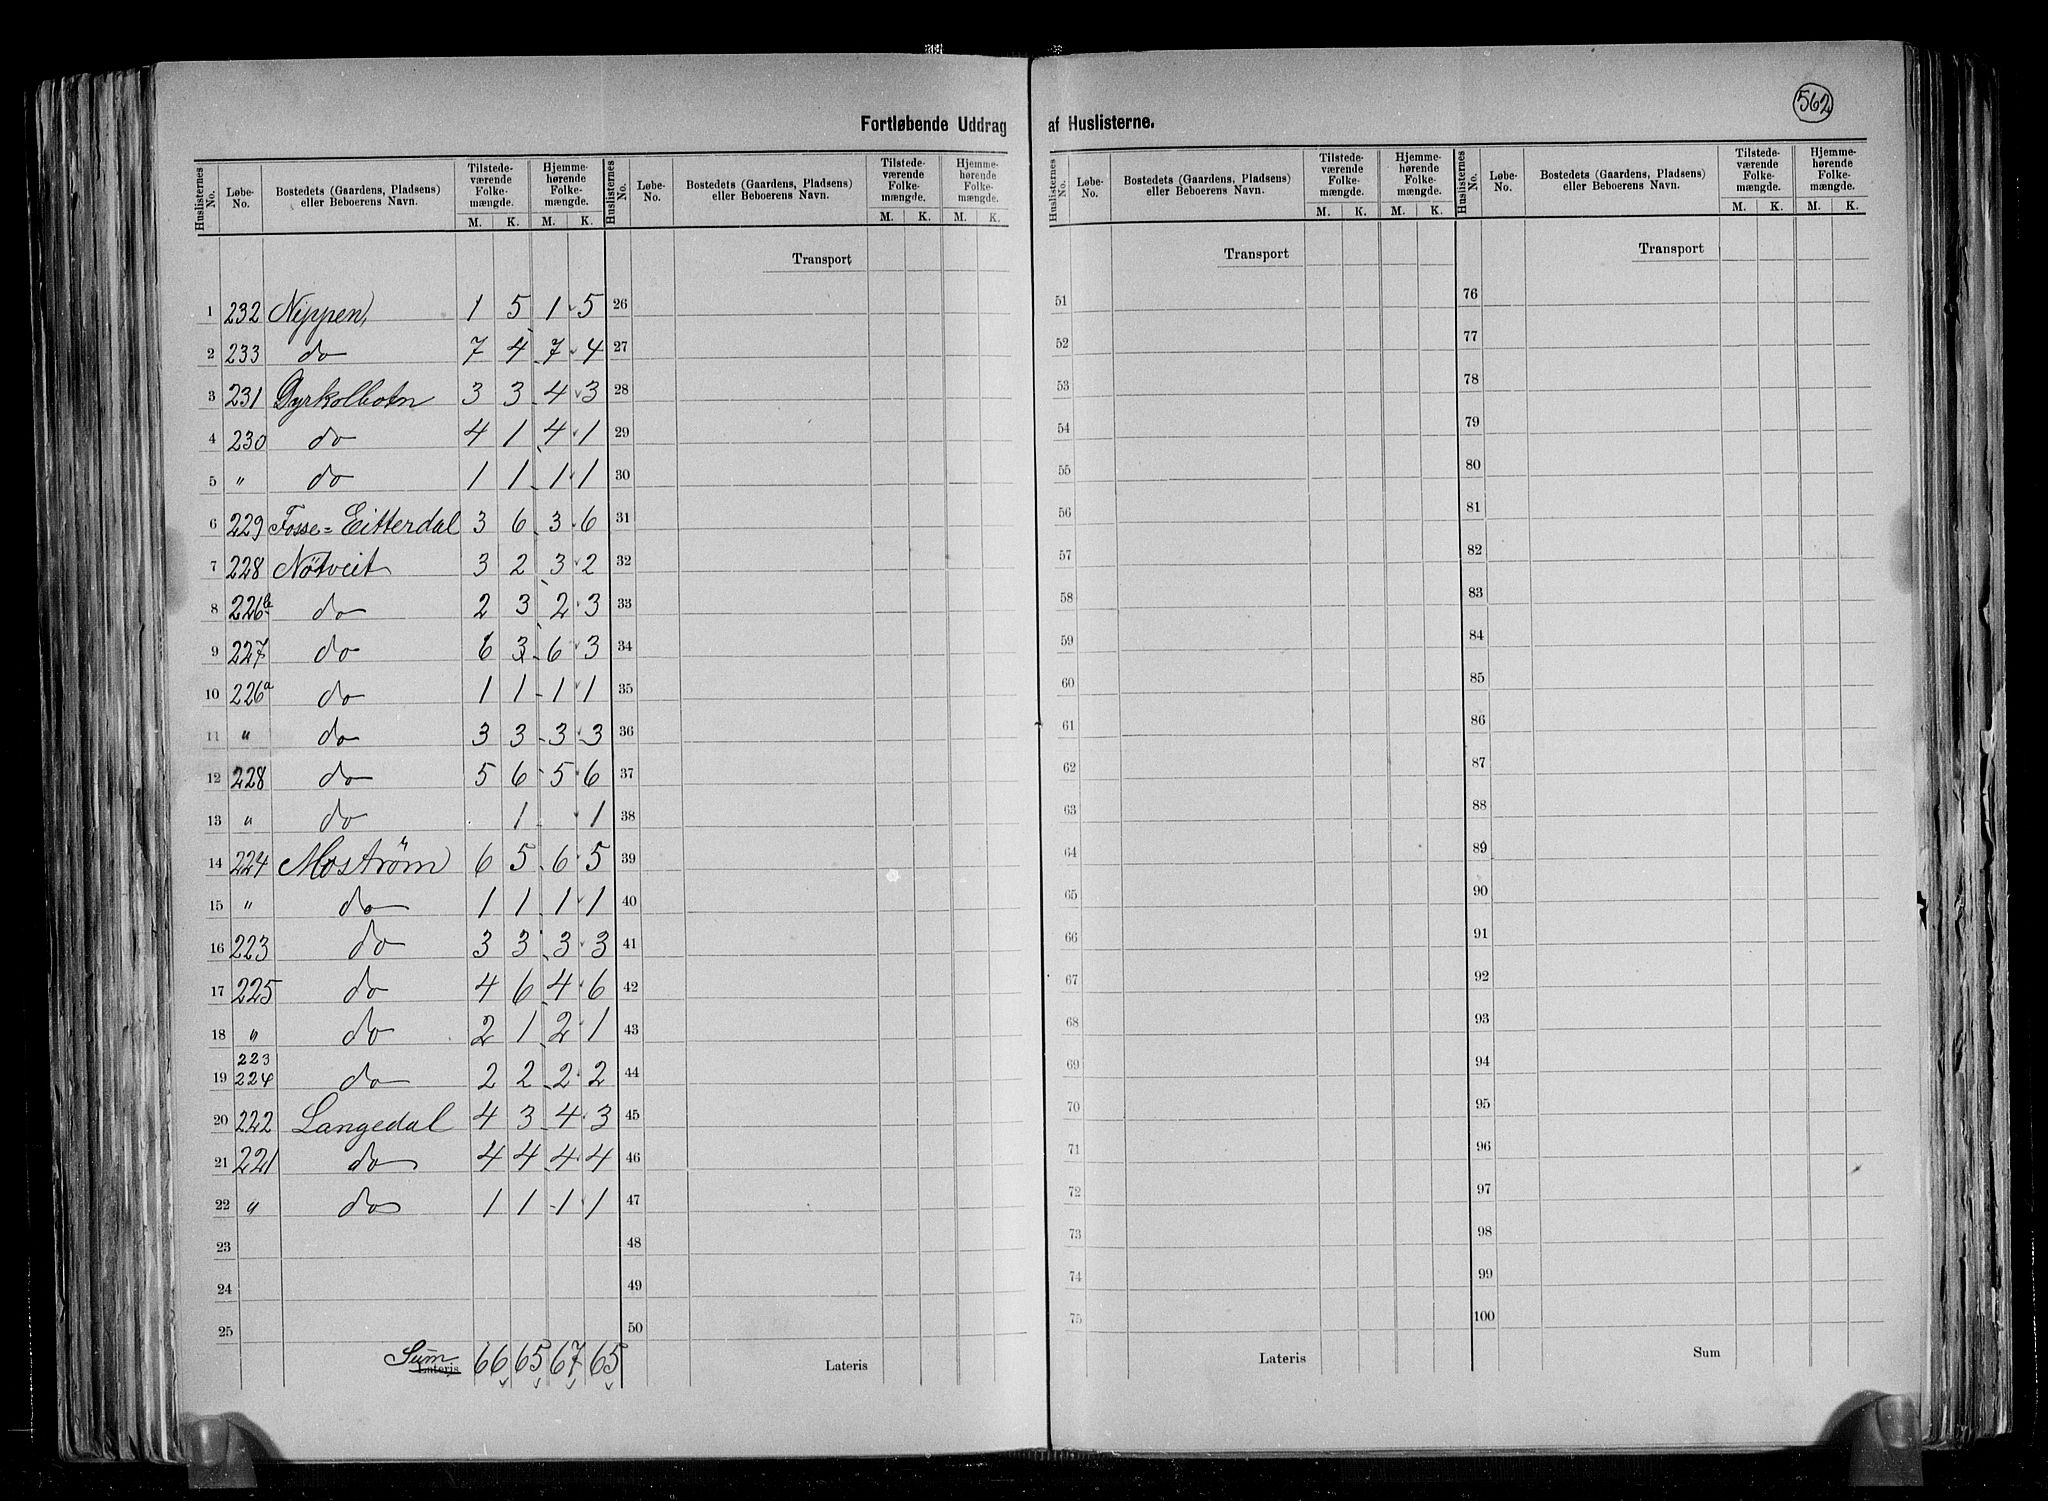 562
Fortløbende Uddrag af Huslisterne.
Huslisternes No. | Løbe-No. | Bostedets (Gaardens, Pladsens) eller Beboerens Navn. | Tilstedeværende Folkemængde. M. K. | Hjemmehørende Folkemængde. M. K.
1 232 Nippen, 1 5 1 5
2 233 do 7 4 7 4
3 231 Dyrkolbotn 3 3 4 3
4 230 do 4 1 4 1
5 " do 1 1 1 1
6 229 Fosse=Eitterdal 3 6 3 6
7 228 Nötveit 3 2 3 2
8 226b do 2 3 2 3
9 227 do 6 3 6 3
10 226a do 1 1 1 1
11 " do 3 3 3 3
12 228 do 5 6 5 6
13 " do 1 1
14 224 Moström 6 5 6 5
15 " do 1 1 1 1
16 223 do 3 3 3 3
17 225 do 4 6 4 6
18 " do 2 1 2 1
19 223 224 do 2 2 2 2
20 222 Langedal 4 3 4 3
21 221 do 4 4 4 4
22 " do 1 1 1 1
23
24
25
Sum Lateris 66 65 67 65
Huslisternes No. | Løbe-No. | Bostedets (Gaardens, Pladsens) eller Beboerens Navn. | Tilstedeværende Folkemængde. M. K. | Hjemmehørende Folkemængde. M. K.
Transport
26
27
28
29
30
31
32
33
34
35
36
37
38
39
40
41
42
43
44
45
46
47
48
49
50
Lateris
Huslisternes No. | Løbe-No. | Bostedets (Gaardens, Pladsens) eller Beboerens Navn. | Tilstedeværende Folkemængde. M. K. | Hjemmehørende Folkemængde. M. K.
Transport
51
52
53
54
55
56
57
58
59
60
61
62
63
64
65
66
67
68
69
70
71
72
73
74
75
Lateris
Huslisternes No. | Løbe-No. | Bostedets (Gaardens, Pladsens) eller Beboerens Navn. | Tilstedeværende Folkemængde. M. K. | Hjemmehørende Folkemængde. M. K.
Transport
76
77
78
79
80
81
82
83
84
85
86
87
88
89
90
91
92
93
94
95
96
97
98
99
100
Sum